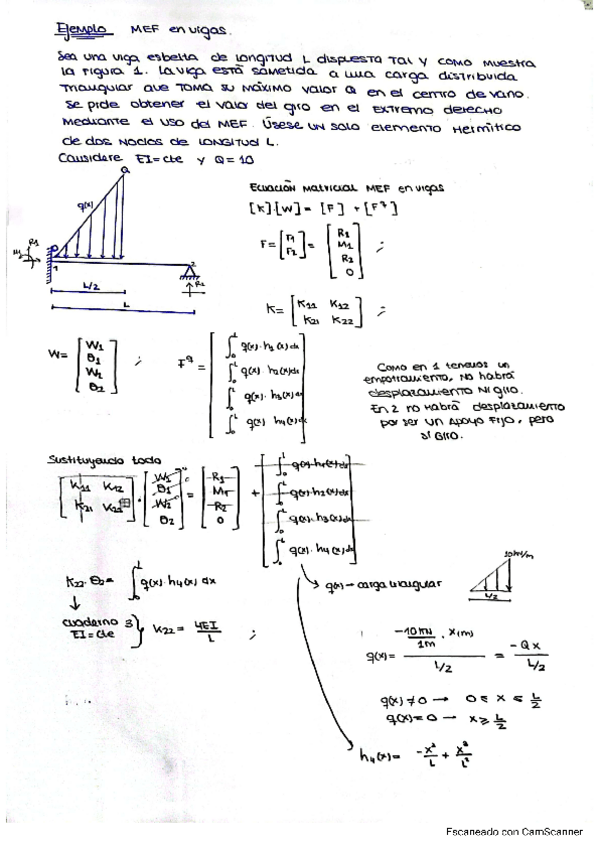 Ejemplo MEF en vigas.
Sea una viga esbelta de longitud L dispuesta tal y como muestra
la figura 1. La viga está sometida a una carga distribuida
triangular que toma su máximo valor Q en el centro de vano.
Se pide obtener el valor del giro en el extremo derecho
mediante el uso del MEF. Úsese un solo elemento Hermítico
de dos nodos de longitud L.
Considere EI=cte y Q=10
Ecuación matricial MEF en vigas
[K]·[W] = [F] + [F^q]
Q
q(x)
F = [F1 F2] = [R1 M1 R2 0] ;
R1
M1
1
2
R2
L/2
L
K = [K11 K12 K21 K22] ;
W = [W1 θ1 W2 θ2] ;
F^q = [∫₀ᴸ q(x)·h1(x)dx
∫₀ᴸ q(x)·h2(x)dx
∫₀ᴸ q(x)·h3(x)dx
∫₀ᴸ q(x)·h4(x)dx]
Como en 1 tenemos un
empotramiento, no habrá
desplazamiento ni giro.
En 2 no habrá desplazamiento
por ser un apoyo fijo, pero
sí giro.
Sustituyendo todo
[K11 K12 K21 K22] · [W1 θ1 W2 θ2] = [R1 M1 R2 0] + [∫₀ᴸ q(x)·h1(x)dx
∫₀ᴸ q(x)·h2(x)dx
∫₀ᴸ q(x)·h3(x)dx
∫₀ᴸ q(x)·h4(x)dx]
K22·θ2 = ∫₀ᴸ q(x)·h4(x) dx
q(x) → carga triangular
10kN/m
L/2
cuaderno 3
EI=cte } K22 = 4EI/L ;
q(x) = (-10kN/1m · x(m))/(L/2) = -Qx/(L/2)
q(x) ≠ 0 → 0 ≤ x ≤ L/2
q(x) = 0 → x ≥ L/2
h4(x) = -x²/L + x³/L²
Escaneado con CamScanner